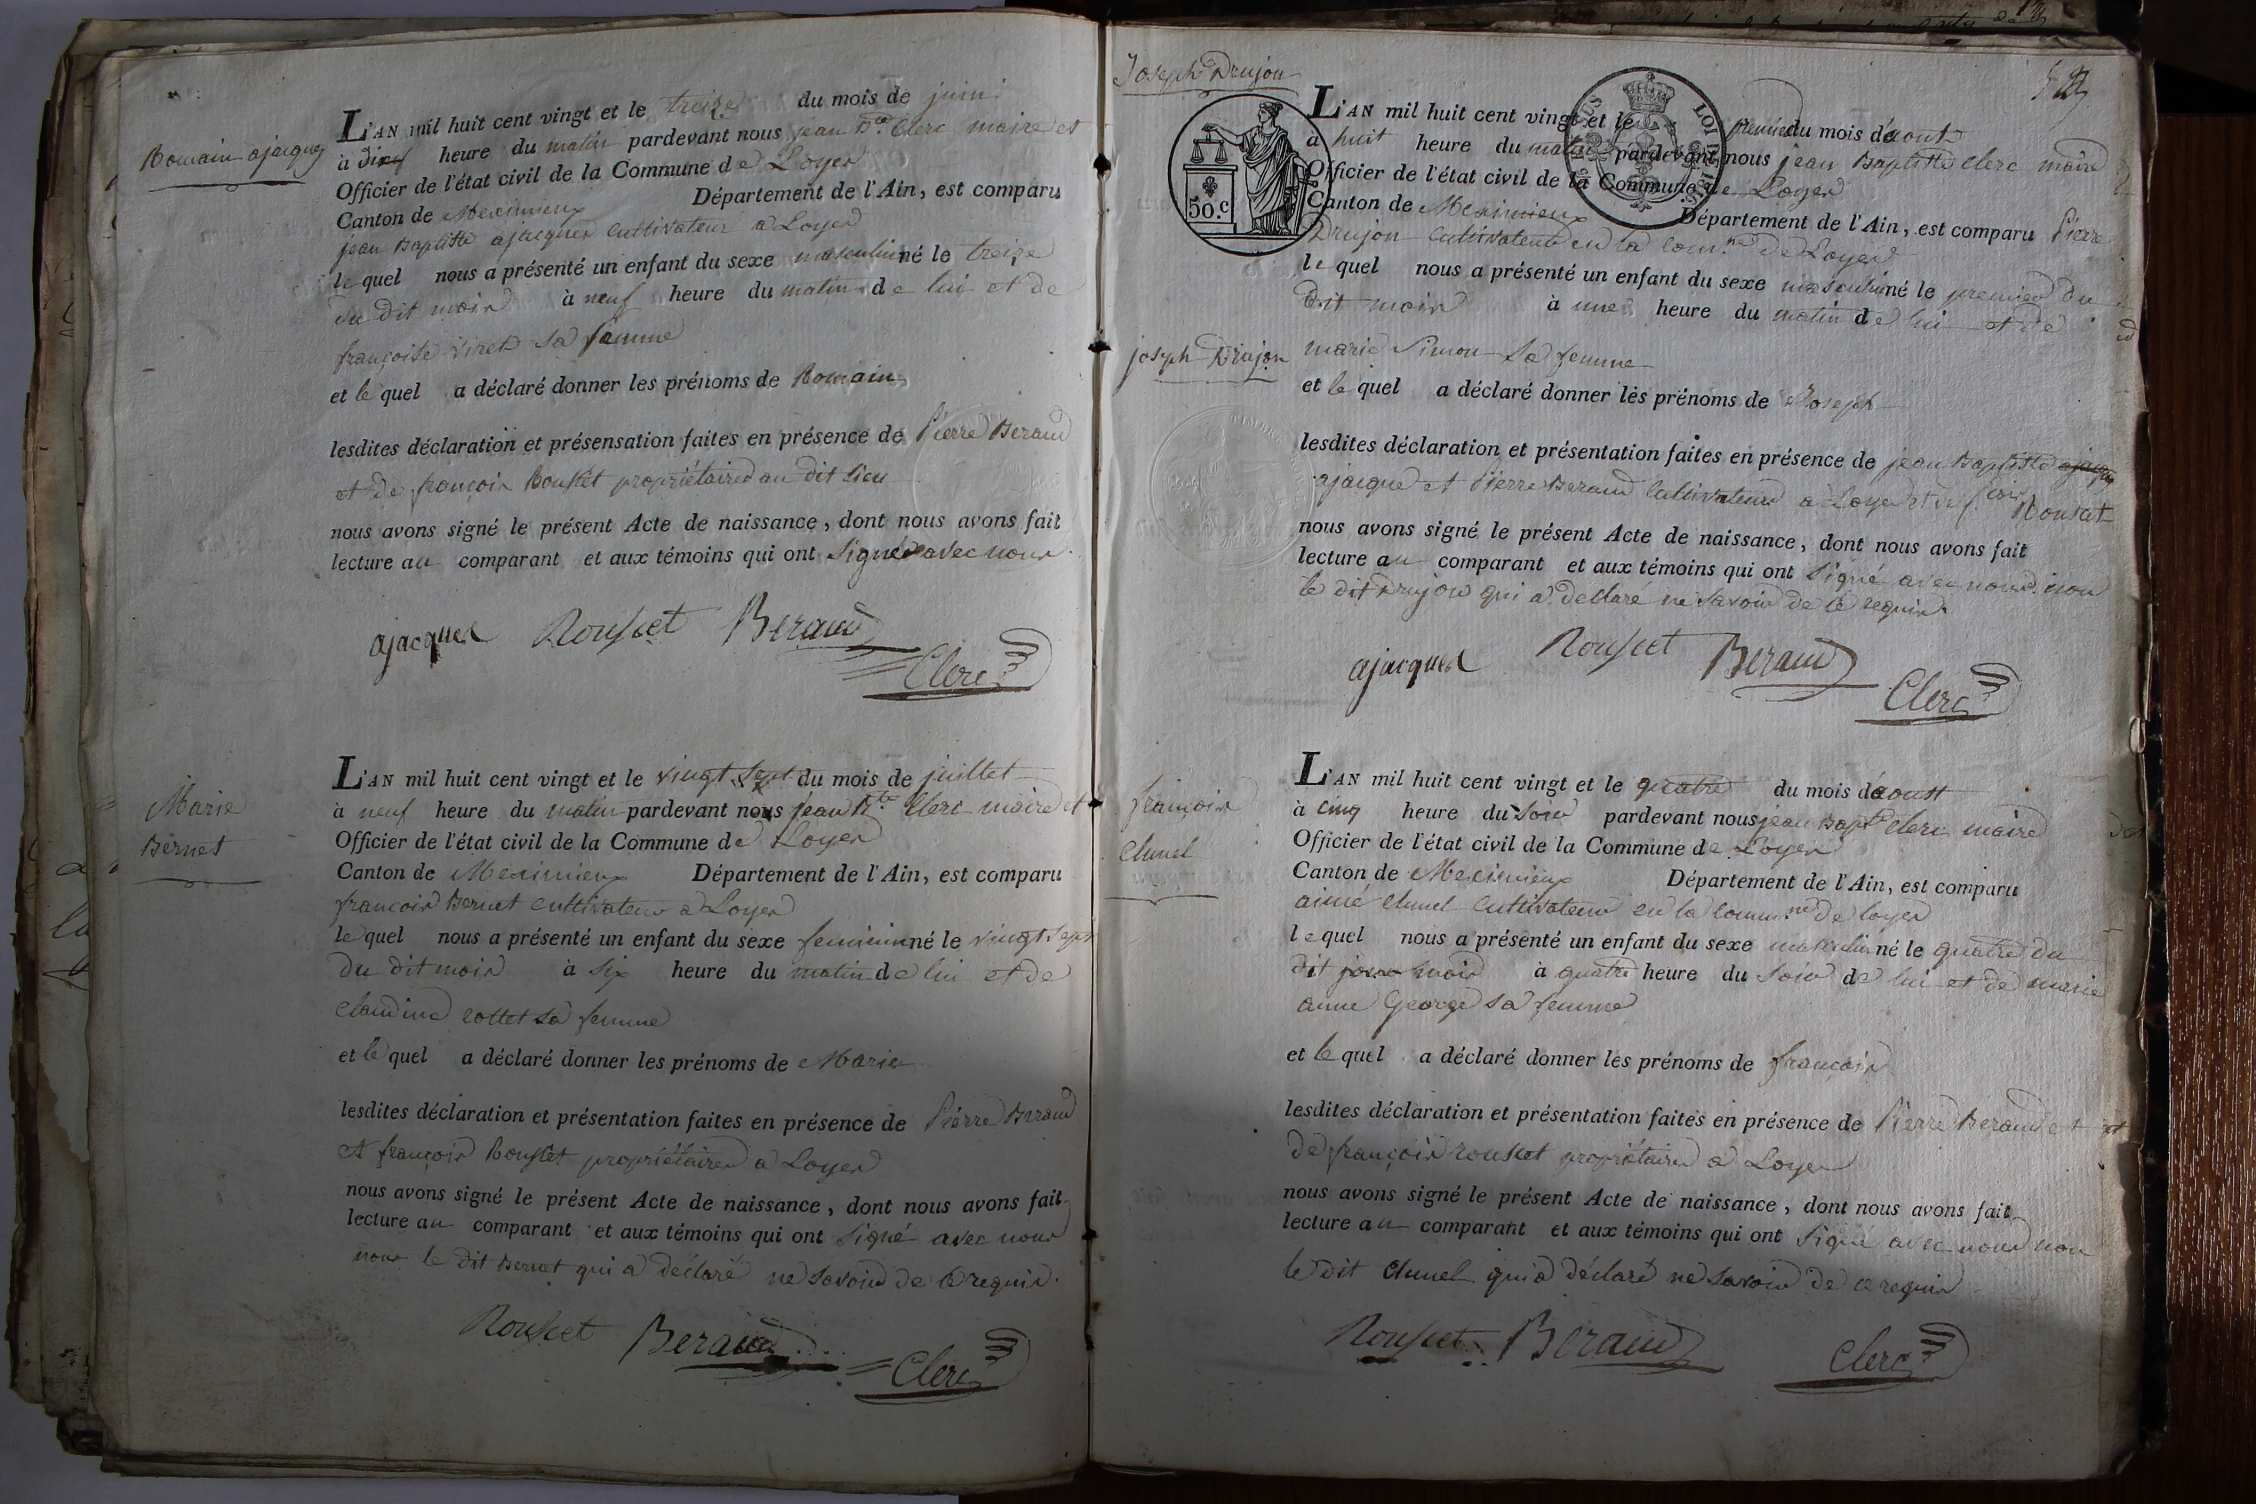 Romain ajacques
L'AN mil huit cent vingt et le treize du mois de juin
à dix heure du matin pardevant nous jean Bte Clerc maire et
Officier de l'état civil de la Commune de Loyes
Canton de Meximieux Département de l'Ain, est comparu
jean Baptiste ajacques cultivateur a Loyes
le quel nous a présenté un enfant du sexe masculin né le treize
du dit mois à neuf heure du matin de lui et de
françoise viret sa femme
et le quel a déclaré donner les prénoms de Romain
lesdites déclaration et présensation faites en présence de Pierre Beraud
et de françois Rousset propriétaires au dit lieu
nous avons signé le présent Acte de naissance, dont nous avons fait
lecture au comparant et aux témoins qui ont signé avec nous.
ajacques Rousset Beraud
Clerc
Marie
Bernet
L'AN mil huit cent vingt et le vingt sept du mois de juillet
à neuf heure du matin pardevant nous jean Bte Clerc maire et
Officier de l'état civil de la Commune de Loyes
Canton de Meximieux Département de l'Ain, est comparu
françois Bernet cultivateur a Loyes
le quel nous a présenté un enfant du sexe feminin né le vingt sept
du dit mois à six heure du matin de lui et de
Claudine rottet sa femme
et le quel a déclaré donner les prénoms de Marie
lesdites déclaration et présentation faites en présence de Pierre Beraud
et françois Rousset propriétaires a Loyes
nous avons signé le présent Acte de naissance, dont nous avons fait
lecture au comparant et aux témoins qui ont signé avec nous
non le dit Bernet qui a déclaré ne savoir de ce requis.
Rousset Beraud
Clerc
Joseph Drujon
50.c
LOI DE 1816
L'AN mil huit cent vingt et le premier du mois d'aout
à huit heure du matin pardevant nous jean Baptiste Clerc maire
Officier de l'état civil de la Commune de Loyes
Canton de Meximieux Département de l'Ain, est comparu Pierre
Drujon cultivateur en la comne de Loyes
le quel nous a présenté un enfant du sexe masculin né le premier du
dit mois à une heure du matin de lui et de
joseph Drujon
marie Simon sa femme
et le quel a déclaré donner lés prénoms de Joseph
lesdites déclaration et présentation faites en présence de jean Baptiste ajacque
ajacque et Pierre Beraud cultivateurs a Loyes et de fcois Rousset
nous avons signé le présent Acte de naissance, dont nous avons fait
lecture au comparant et aux témoins qui ont signé avec nous non
le dit Drujon qui a declaré ne savoir de ce requis.
ajacques Rousset Beraud
Clerc
françois
Chunel
L'AN mil huit cent vingt et le quatre du mois d'aoust
à cinq heure du soir pardevant nous jean Bapte Clerc maire
Officier de l'état civil de la Commune de Loyes
Canton de Meximieux Département de l'Ain, est comparu
aimé Chunel cultivateur en la commne de loyes
le quel nous a présenté un enfant du sexe masculin né le quatre du
dit jour mois à quatre heure du soir de lui et de marie
anne George sa femme
et le quel a déclaré donner lés prénoms de françois
lesdites déclaration et présentation faites en présence de Pierre Beraud et
de françois rousset propriétaires a Loyes
nous avons signé le présent Acte de naissance, dont nous avons fait
lecture au comparant et aux témoins qui ont signé avec nous non
le dit Chunel qui a déclaré ne savoir de ce requis
Rousset Beraud
Clerc